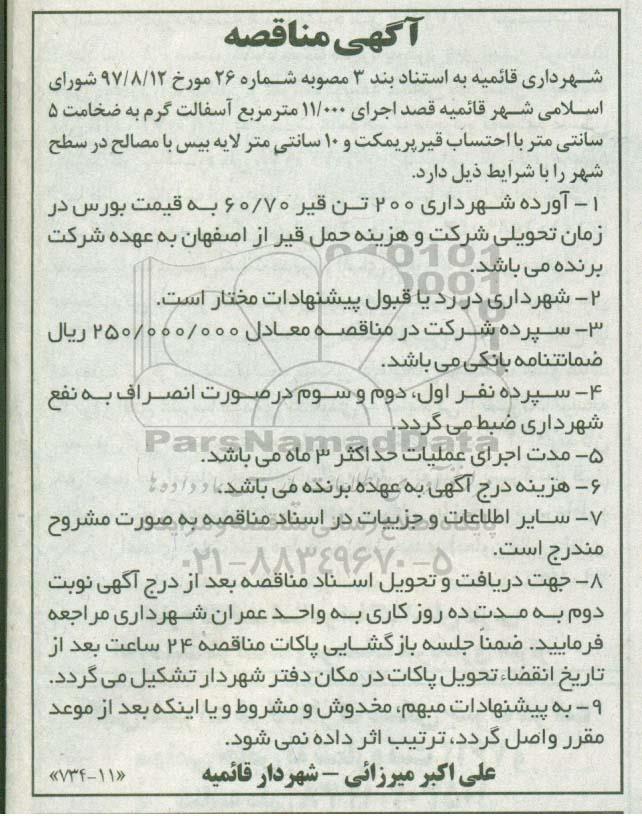 آگهی مناقصه
شهرداری قائمیه به استناد بند ۳ مصوبه شماره ۲۶ مورخ ۹۷/۸/۱۲ شورای
اسلامی شهر قائمیه قصد اجرای ۱۱/۰۰۰ مترمربع آسفالت گرم به ضخامت ۵
سانتی متر با احتساب قیرپریمکت و ۱۰ سانتی متر لایه بیس با مصالح در سطح
شهر را با شرایط ذیل دارد.
۱- آورده شهرداری ۲۰۰ تن قیر ۶۰/۷۰ به قیمت بورس در
زمان تحویلی شرکت و هزینه حمل قیر از اصفهان به عهده شرکت
برنده می باشد.
۲- شهرداری در رد یا قبول پیشنهادات مختار است.
۳- سپرده شرکت در مناقصه معادل ۲۵۰/۰۰۰/۰۰۰ ریال
ضمانتنامه بانکی می باشد.
۴- سپرده نفر اول، دوم و سوم درصورت انصراف به نفع
شهرداری ضبط می گردد.
ParsNamadData
۵- مدت اجرای عملیات حداکثر ۳ ماه می باشد.
۶- هزینه درج آگهی به عهده برنده می باشد.
۷- سایر اطلاعات و جزییات در اسناد مناقصه به صورت مشروح
مندرج است.
۰۲۱-۸۸۳۴۹۶۷۰-۵
۸- جهت دریافت و تحویل اسناد مناقصه بعد از درج آگهی نوبت
دوم به مدت ده روز کاری به واحد عمران شهرداری مراجعه
فرمایید. ضمناً جلسه بازگشایی پاکات مناقصه ۲۴ ساعت بعد از
تاریخ انقضاء تحویل پاکات در مکان دفتر شهردار تشکیل می گردد.
۹- به پیشنهادات مبهم، مخدوش و مشروط و یا اینکه بعد از موعد
مقرر واصل گردد، ترتیب اثر داده نمی شود.
علی اکبر میرزائی - شهردار قائمیه «۷۳۴-۱۱»